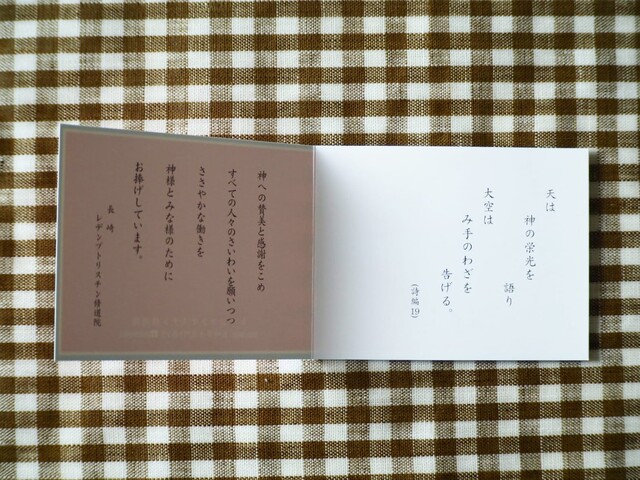 天は
神の栄光を
語り
大空は
み手のわざを
告げる。
(詩編19)
神への賛美と感謝をこめ
すべての人々のさいわいを願いつつ
ささやかな働きを
神様とみな様のために
お捧げしています。
長崎
レデンプトリスチン修道院